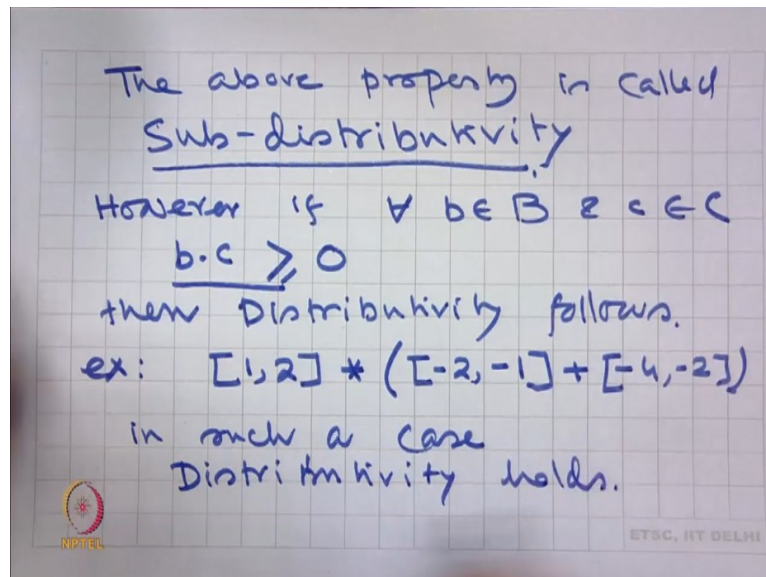 The above property is called
Sub-distributivity.
However if ∀ b ∈ B & c ∈ C
b.c ≥ 0
then Distributivity follows.
ex: [1, 2] * ([-2, -1] + [-4, -2])
in such a case
Distributivity holds.
NPTEL
ETSC, IIT DELHI